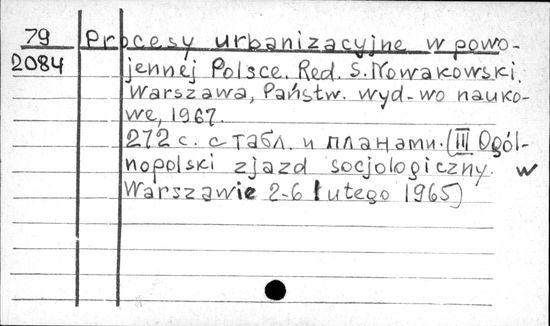 79 Procesy urbanizacyjne w powo-
2084 jennej Polsce. Red. S. Nowakowski.
Warszawa, Państw. wyd-wo nauko-
we, 1967.
272 с. с табл. и планами. (III Ogól-
nopolski zjazd socjologiczny. w
Warszawie 2-6 lutego 1965)